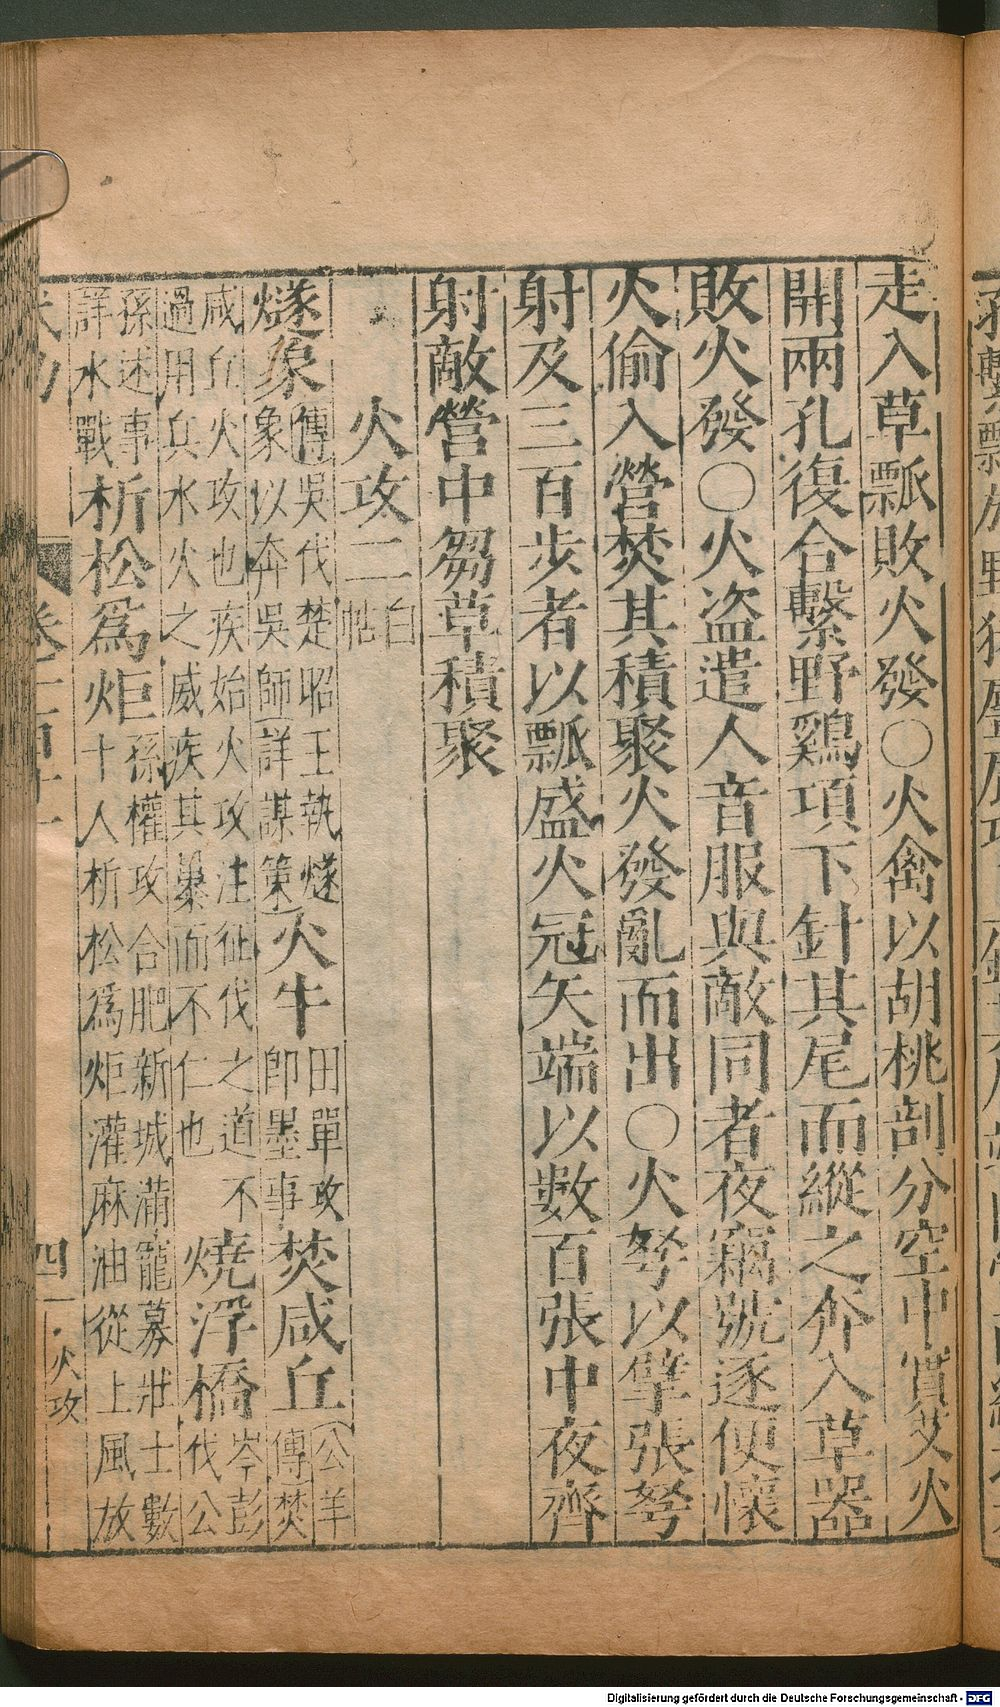 走入草瓢敗火發○火禽以胡桃剖分空中實艾火
開兩孔復合繫野鷄項下針其尾而縱之奔入草器
敗火發○火盜遣人音服與敵同者夜竊號逐便懷
火偷入營焚其積聚火發亂而出○火弩以擘張弩
射及三百步者以瓢盛火冠矢端以數百張中夜齊
射敵營中芻草積聚
火攻二白帖
燧象傳吳伐楚昭王執燧象以奔吳師詳謀策火牛田單攻即墨事焚咸丘公羊傳焚
咸丘火攻也疾始火攻注征伐之道不過用兵水火之威疾其暴而不仁也燒浮橋岑彭伐公
孫述事詳水戰析松爲炬孫權攻合肥新城滿寵募壯士數十人析松爲炬灌麻油從上風放
卷二百十一
四
火攻
Digitalisierung gefördert durch die Deutsche Forschungsgemeinschaft - DFG